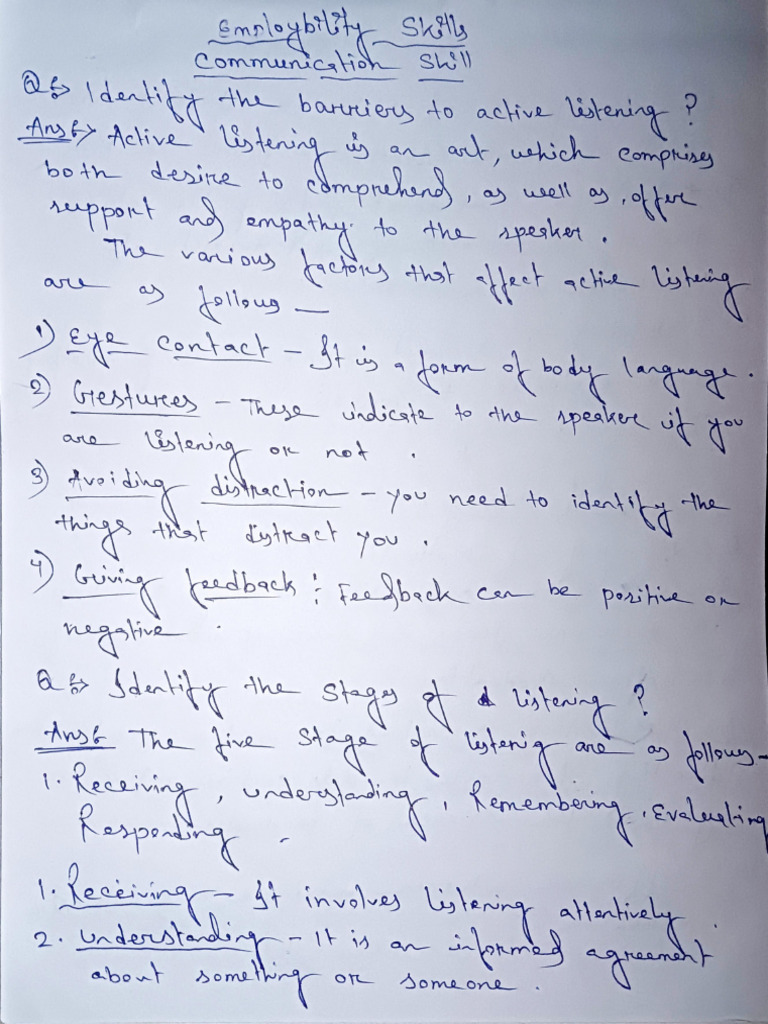 Employbility Skills
Communication Skill
Q:→ Identify the barriers to active listening?
Ans:→ Active listening is an art, which comprises
both desire to comprehend, as well as, offer
support and empathy to the speaker.
The various factors that affect active listening
are as follows —
1) Eye contact - It is a form of body language.
2) Gestures - These indicate to the speaker if you
are listening or not.
3) Avoiding distraction - you need to identify the
things that distract you.
4) Giving feedback: Feedback can be positive or
negative.
Q:→ Identify the stages of listening?
Ans: The five stage of listenig are as follows-
1. Receiving, understanding, Remembering, Evaluating
Responding.
1. Receiving - It involves listening attentively.
2. understanding - It is an informed agreement
about something or someone.